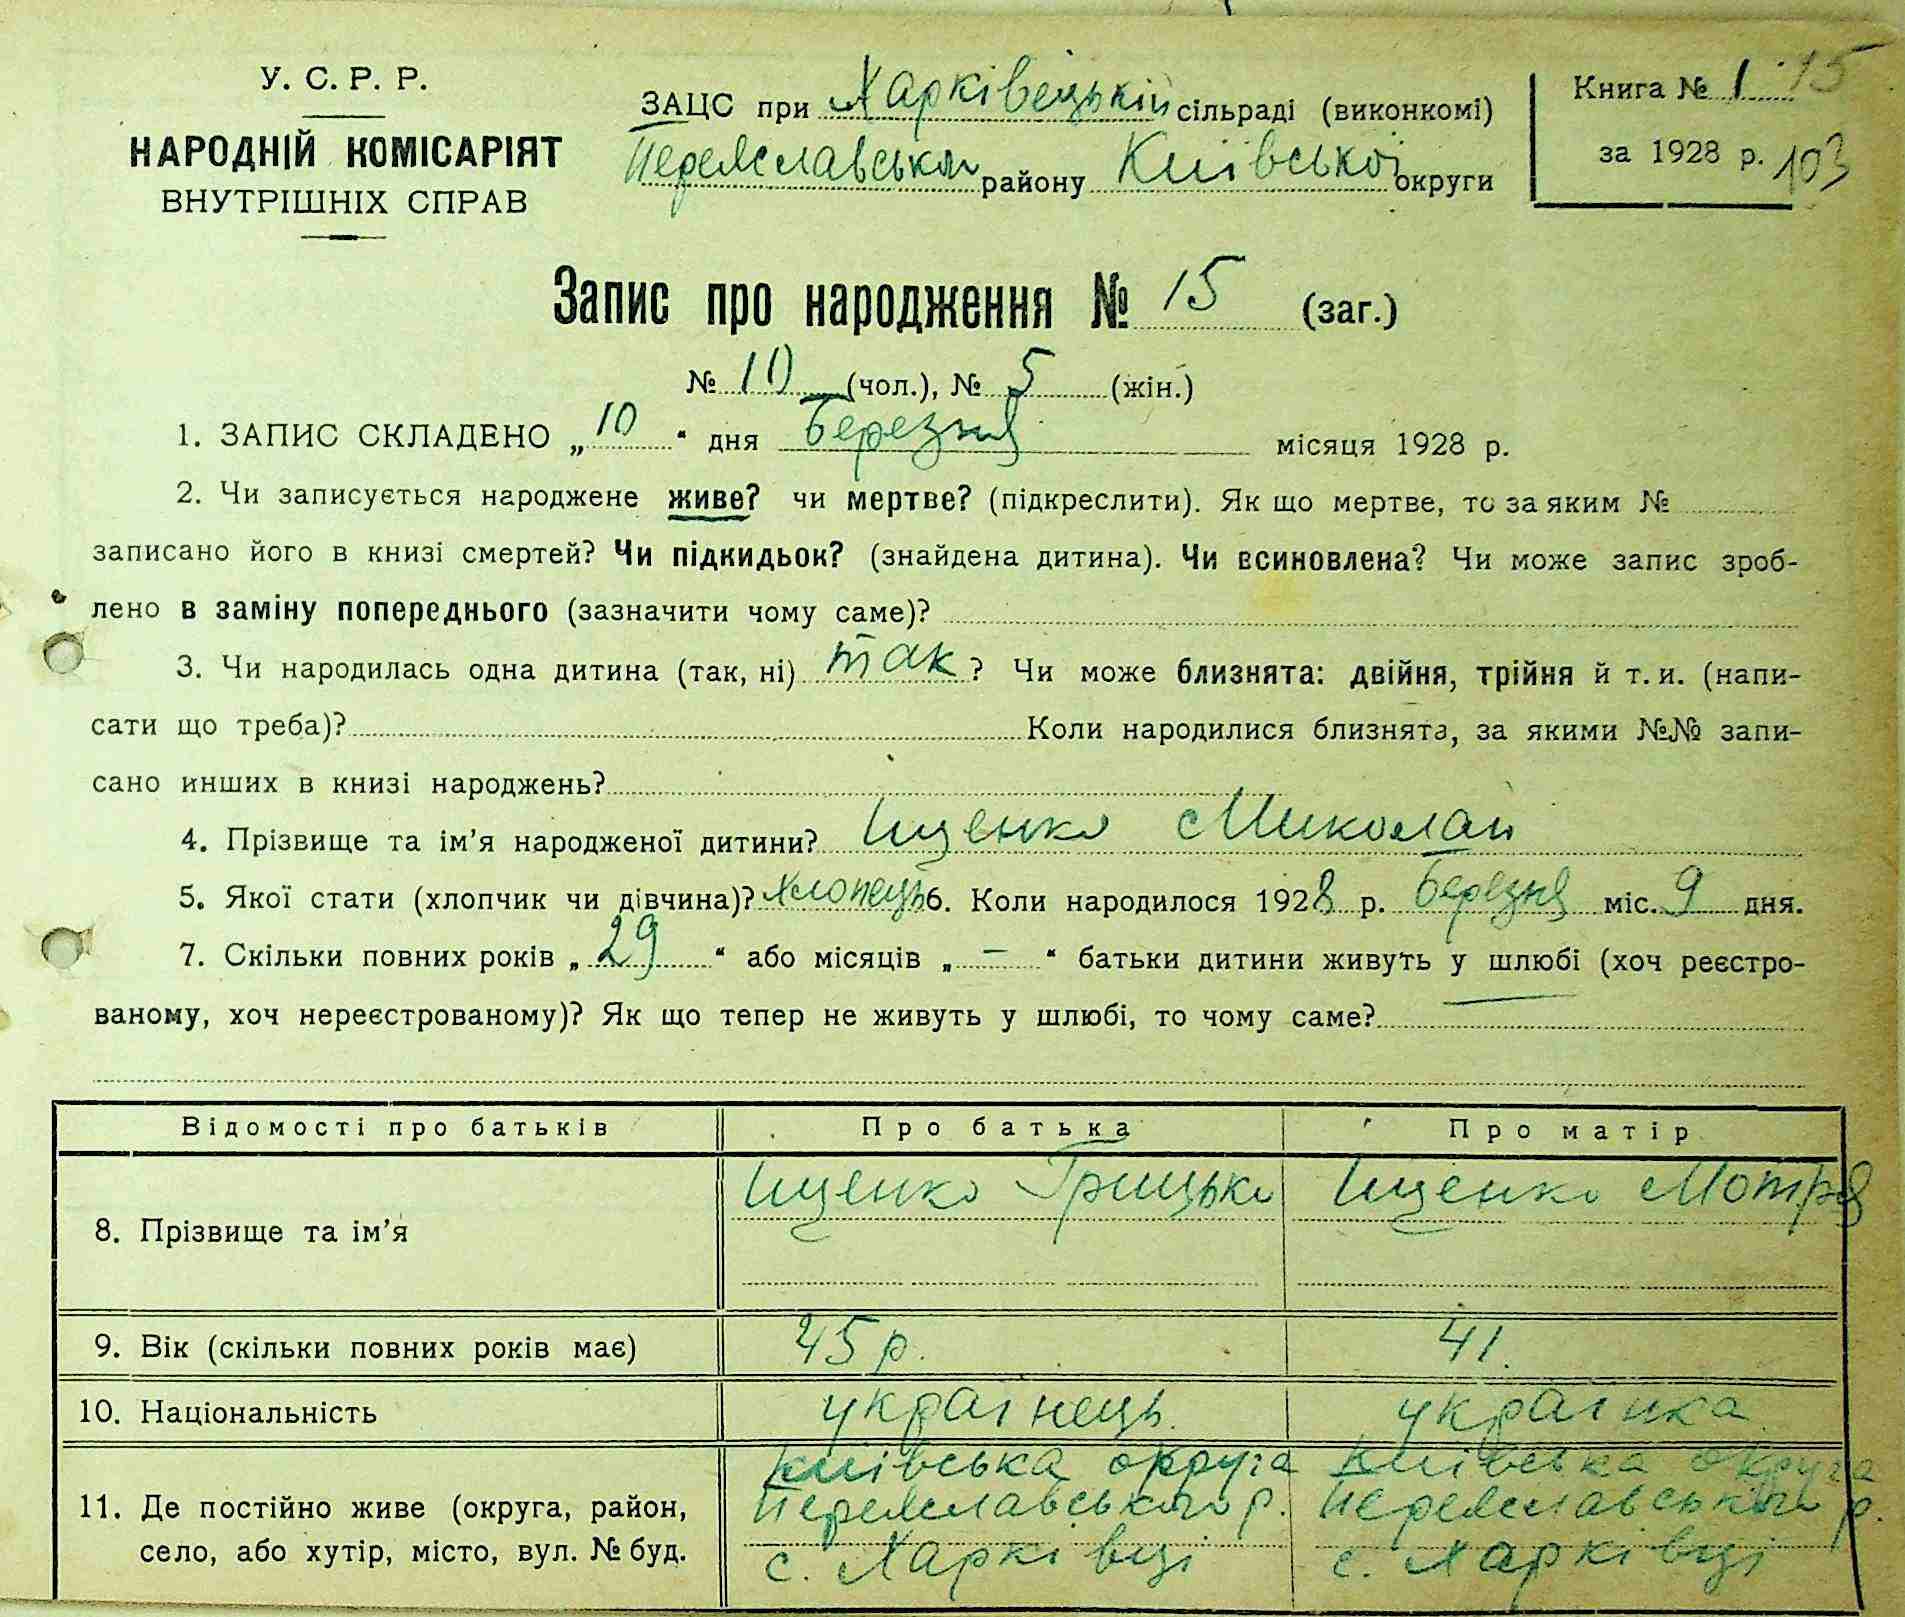 У. С. Р. Р.
НАРОДНІЙ КОМІСАРІЯТ
ВНУТРІШНІХ СПРАВ
ЗАЦС при Харківецькій сільраді (виконкомі)
Переяславськ району Київської округи
Книга № 1 15
за 1928 р. 103
Запис про народження № 15 (заг.)
№ 10 (чол.), № 5 (жін.)
1. ЗАПИС СКЛАДЕНО „10“ дня Березня місяця 1928 р.
2. Чи записується народжене живе? чи мертве? (підкреслити). Як що мертве, то за яким №
записано його в книзі смертей? Чи підкидьок? (знайдена дитина). Чи всиновлена? Чи може запис зроб-
лено в заміну попереднього (зазначити чому саме)?
3. Чи народилась одна дитина (так, ні) так? Чи може близнята: двійня, трійня й т. и. (напи-
сати що треба)? Коли народилися близнята, за якими №№ запи-
сано инших в книзі народжень?
4. Прізвище та ім’я народженої дитини? Іщенко Миколай
5. Якої стати (хлопчик чи дівчина)? Хлопець 6. Коли народилося 1928 р. Березня міс. 9 дня.
7. Скільки повних років „29“ або місяців „—“ батьки дитини живуть у шлюбі (хоч реєстро-
ваному, хоч нереєстрованому)? Як що тепер не живуть у шлюбі, то чому саме?
Відомості про батьків Про батька Про матір
8. Прізвище та ім’я Іщенко Грицько Іщенко Мотря
9. Вік (скільки повних років має) 45 р. 41.
10. Національність українець. українка
11. Де постійно живе (округа, район,
село, або хутір, місто, вул. № буд.
Київська округа
Переяславського р.
с. Харківці
Київська округа
Переяславського р.
с. Харківці